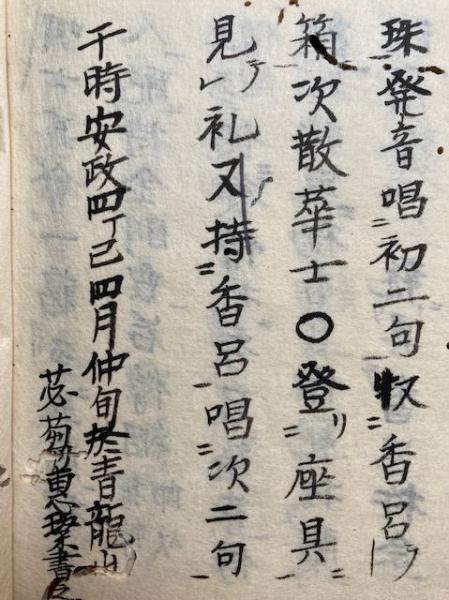 珠発音唱初二句収香呂ヲ
箱次散華士〇登リ座具
見ヲ礼又持香呂唱次二句
干時安政四丁巳四月仲旬於青龍山
苾蒭恵瑧書之